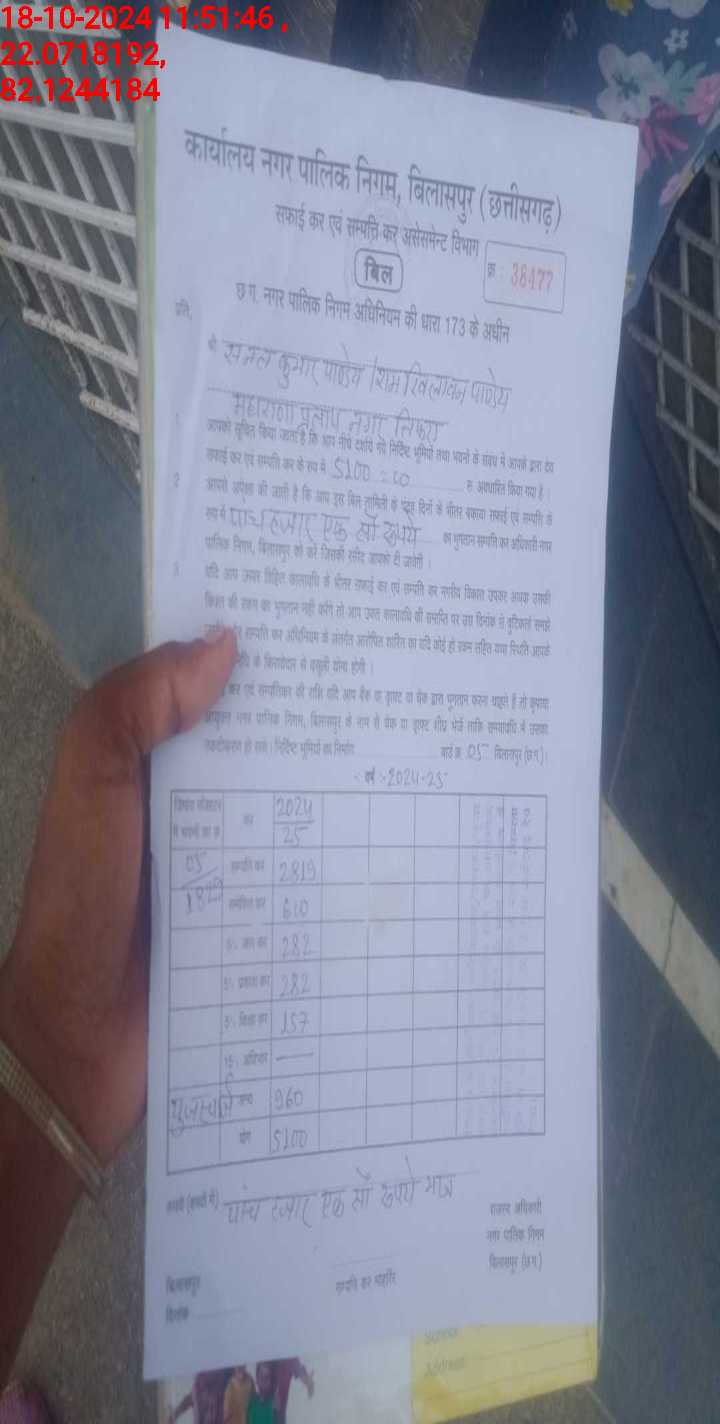 18-10-2024 11:51:46 ,
22.0718192,
82.1244184
कार्यालय नगर पालिक निगम, बिलासपुर (छत्तीसगढ़)
सफाई कर एवं सम्पत्ति कर असेसमेन्ट विभाग
बिल
क्र. 38477
छ.ग. नगर पालिक निगम अधिनियम की धारा 173 के अधीन
प्रति,
श्री सनत कुमार पाण्डेय / रामखिलावन पाण्डेय
महाराणा प्रताप नगर तिफरा
1. आपको सूचित किया जाता है कि आप नीचे दर्शाये गये निर्दिष्ट भूमियों तथा भवनों के संबंध में आपके द्वारा देय
सफाई कर एवं सम्पत्ति कर के रुप में 5100=00 रु. अवधारित किया गया है।
2. आपसे अपेक्षा की जाती है कि आप इस बिल तामिली के पन्द्रह दिनों के भीतर बकाया सफाई एवं सम्पत्ति के
रुप में पांच हजार एक सौ रुपये का भुगतान सम्पत्ति कर अधिकारी नगर
पालिक निगम, बिलासपुर को करें जिसकी रसीद आपको दी जावेगी।
3. यदि आप ऊपर विहित कालावधि के भीतर सफाई कर एवं सम्पत्ति कर नगरीय विकास उपकर अथवा उसकी
किश्त की रकम का भुगतान नहीं करेंगे तो आप उक्त कालावधि की समाप्ति पर उस दिनांक से त्रुटिकर्ता समझे
सम्पत्ति कर अधिनियम के अंतर्गत आरोपित शास्ति का यदि कोई हो रकम सहित यथा स्थिति आपके
के किरायेदार से वसूली योग्य होगी।
कर एवं सम्पत्तिकर की राशि यदि आप बैंक या ड्राफ्ट या चेक द्वारा भुगतान करना चाहते हैं तो कृपया
आयुक्त नगर पालिक निगम, बिलासपुर के नाम से चेक या ड्राफ्ट शीघ्र भेजें ताकि समयावधि में उसका
एकत्रीकरण हो सके। निर्दिष्ट भूमियों का निर्माण वार्ड क्र. 05 बिलासपुर (छ.ग.)।
वर्ष :- 2024-25
डिमांड रजिस्टर में भवनों का क्र. कर 2024/25
05/ सम्पत्ति कर 2819
समेकित कर 610
282
282
157
अधिभार —
यूजरचार्ज अन्य 960
योग 5100
रुपये (शब्दों में) पांच हजार एक सौ रुपये मात्र
राजस्व अधिकारी
नगर पालिक निगम
बिलासपुर (छ.ग.)
बिलासपुर
दिनांक
सम्पत्ति कर मोहर्रिर
Address